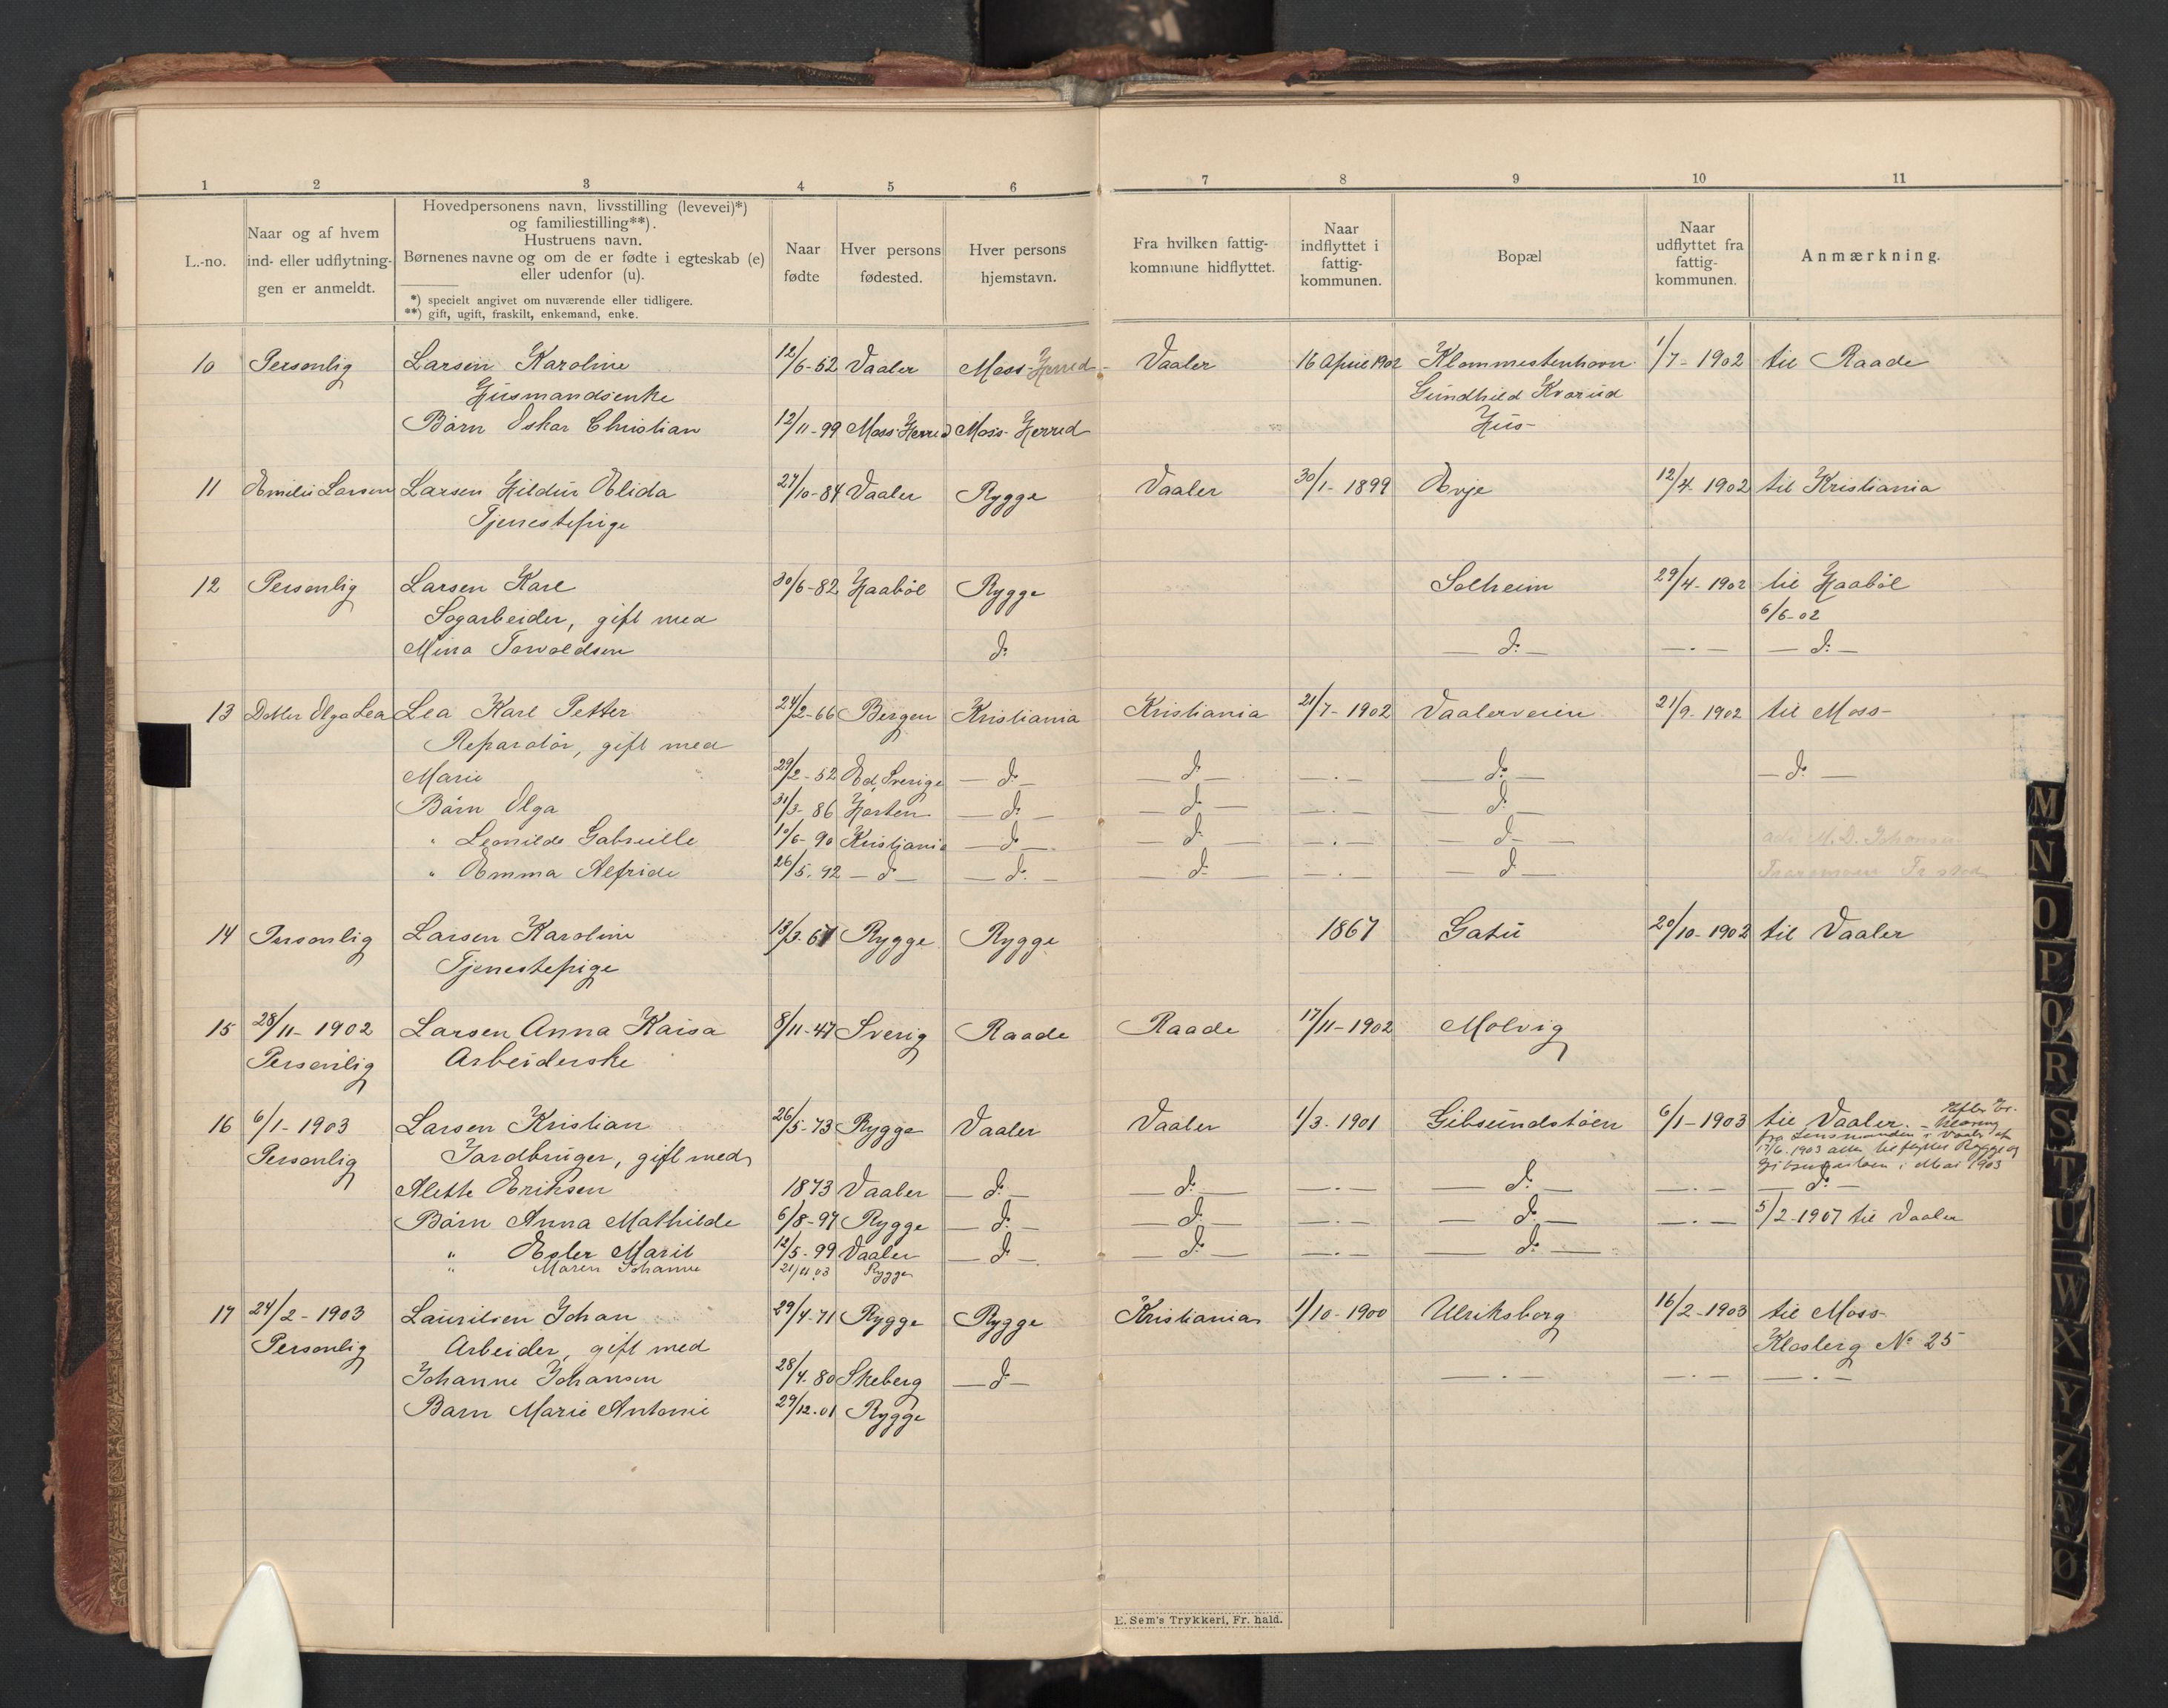 1 2 3 4 5 6 7 8 9 10 11
L.-no.
Naar og af hvem
ind- eller udflytnin-
gen er anmeldt.
Hovedpersonens navn, livsstilling (levevei)*)
og familiestilling**).
Hustruens navn.
Børnenes navne og om de er fødte i egteskab (e)
eller udenfor (u).
*) specielt angivet om nuværende eller tidligere.
**) gift, ugift, fraskilt, enkemand, enke.
Naar
fødte
Hver persons
fødested.
Hver persons
hjemstavn.
Fra hvilken fattig-
kommune hidflyttet.
Naar
indflyttet i
fattig-
kommunen.
Bopæl
Naar
udflyttet fra
fattig-
kommunen.
Anmærkning.
10 Personlig Larsen Karoline 12/6-52 Vaaler Moss-Herred Vaaler 16 April 1902 Klommestenhavn 1/7-1902 til Raade
Husmandsenke Gundhild Kvarud
Barn Oskar Christian 12/11-99 Moss-Herred Moss-Herred Hus-
11 Emilie Larsen Larsen Hildur Elida 27/10-84 Vaaler Rygge Vaaler 30/1-1899 Evje 12/4-1902 til Kristiania
Tjenestepige
12 Personlig Larsen Karl 30/6-82 Haabøl Rygge Solheim 29/4-1902 til Haabøl
Sagarbeider, gift med 6/6-02
Mina Torvaldsen do — do — — . — — do —
13 Datter Olga Lea Lea Karl Petter 24/2-66 Bergen Kristiania Kristiania 21/7-1902 Vaalerveien 21/9-1902 til Moss-
Reparatør, gift med
Marie 29/2-52 Ed, Sverige — do — — do — — . — — do — — do —
Barn Olga 31/3-86 Horten — do — — do — — . — — do —
" Leonilde Gabrielle 10/6-90 Kristiania — do — — do — — . — — do — M. D. Johansen
" Emma Alfride 26/5-92 — do — — do — — do — — . — — do —
14 Personlig Larsen Karoline 13/3-67 Rygge Rygge 1867 Gatu 20/10-1902 til Vaaler
Tjenestepige
15 28/11-1902 Larsen Anna Kaisa 8/11-47 Sverig Raade Raade 17/11-1902 Molvig
Personlig Arbeiderske
16 6/1-1903 Larsen Kristian 26/5-73 Rygge Vaaler Vaaler 1/3-1901 Gibsundstøen 6/1-1903 til Vaaler. -
Personlig Jordbruger, gift med
fra Lensmanden i Vaaler af
17/6.1903 atter tilflyttet Rygge og
Gibsundstøen i Mai 1903
Alette Eriksen 1873 Vaaler — do — — do — — . — — do — — . — — do —
Barn Anna Mathilde 6/8-97 Rygge — do — — do — — . — — do — — . — 5/2-1907 til Vaaler
" Ester Marie 12/5-99 Vaaler — do — — do — — . — — do —
" Maren Johanne 21/11 03 Rygge
17 24/2-1903 Lauritsen Johan 29/4-71 Rygge Rygge Kristiania 1/10-1900 Ulriksborg 16/2-1903 til Moss-
Personlig Arbeider, gift med Klosterg No 25
Johanne Johansen 28/4-80 Skeberg — do — — . — — . — — . —
Barn Marie Antonie 29/12-01 Rygge
E. Sem's Trykkeri, Fr. hald.
M
N
O
P
Q
R
S
T
U
W
X
Y
Z
Æ
Ø